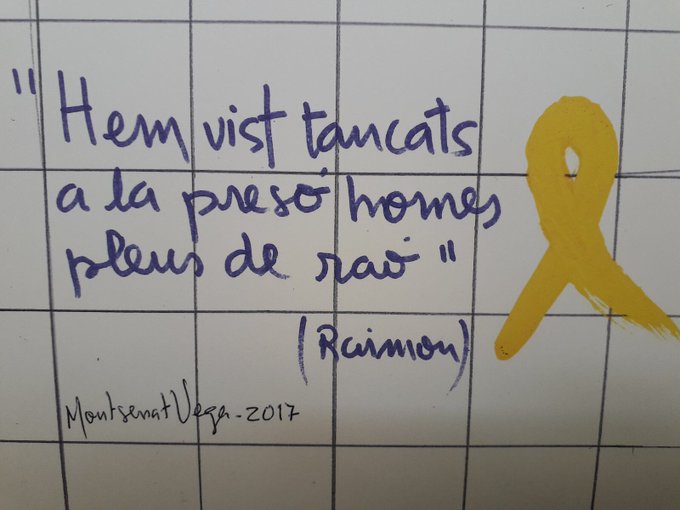 "Hem vist tancats
a la presó homes
plens de raó"
(Raimon)
Montserrat Vega-2017